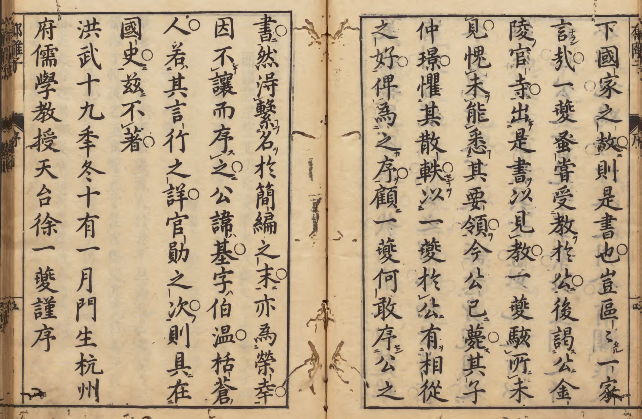 下國家之故則是書也豈區〻一家
言哉一夔蚤嘗受教於公後謁公金
陵官寺出是書以見教一夔駭所未
見愧未能悉其要領今公已薨其子
仲璟懼其散軼以一夔於公有相從
之好俾為之序顧一夔何敢序公之
書然得繫名於簡編之末亦為榮幸
因不讓而序之公諱基字伯温栝蒼
人若其言行之詳官勛之次則具在
國史兹不著
洪武十九秊冬十有一月門生杭州
府儒學教授天台徐一夔謹序